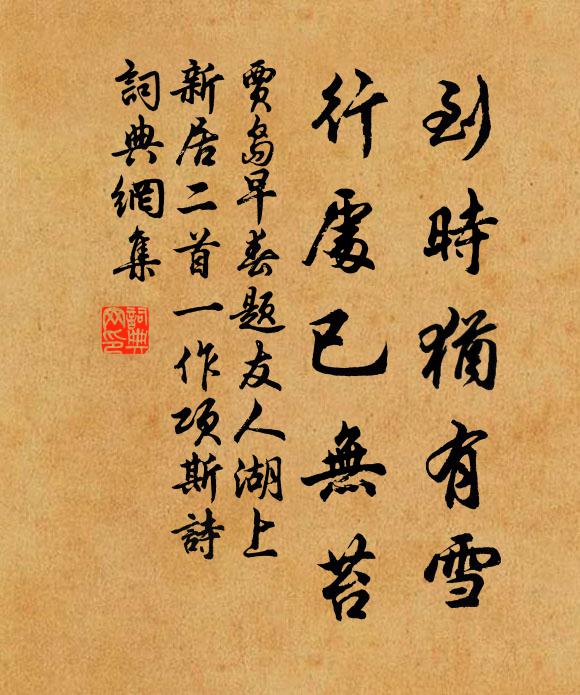 到時猶有雪
行處已無苔
賈島早春題友人湖上
新居二首一作項斯詩
詞典網集
詞典網印